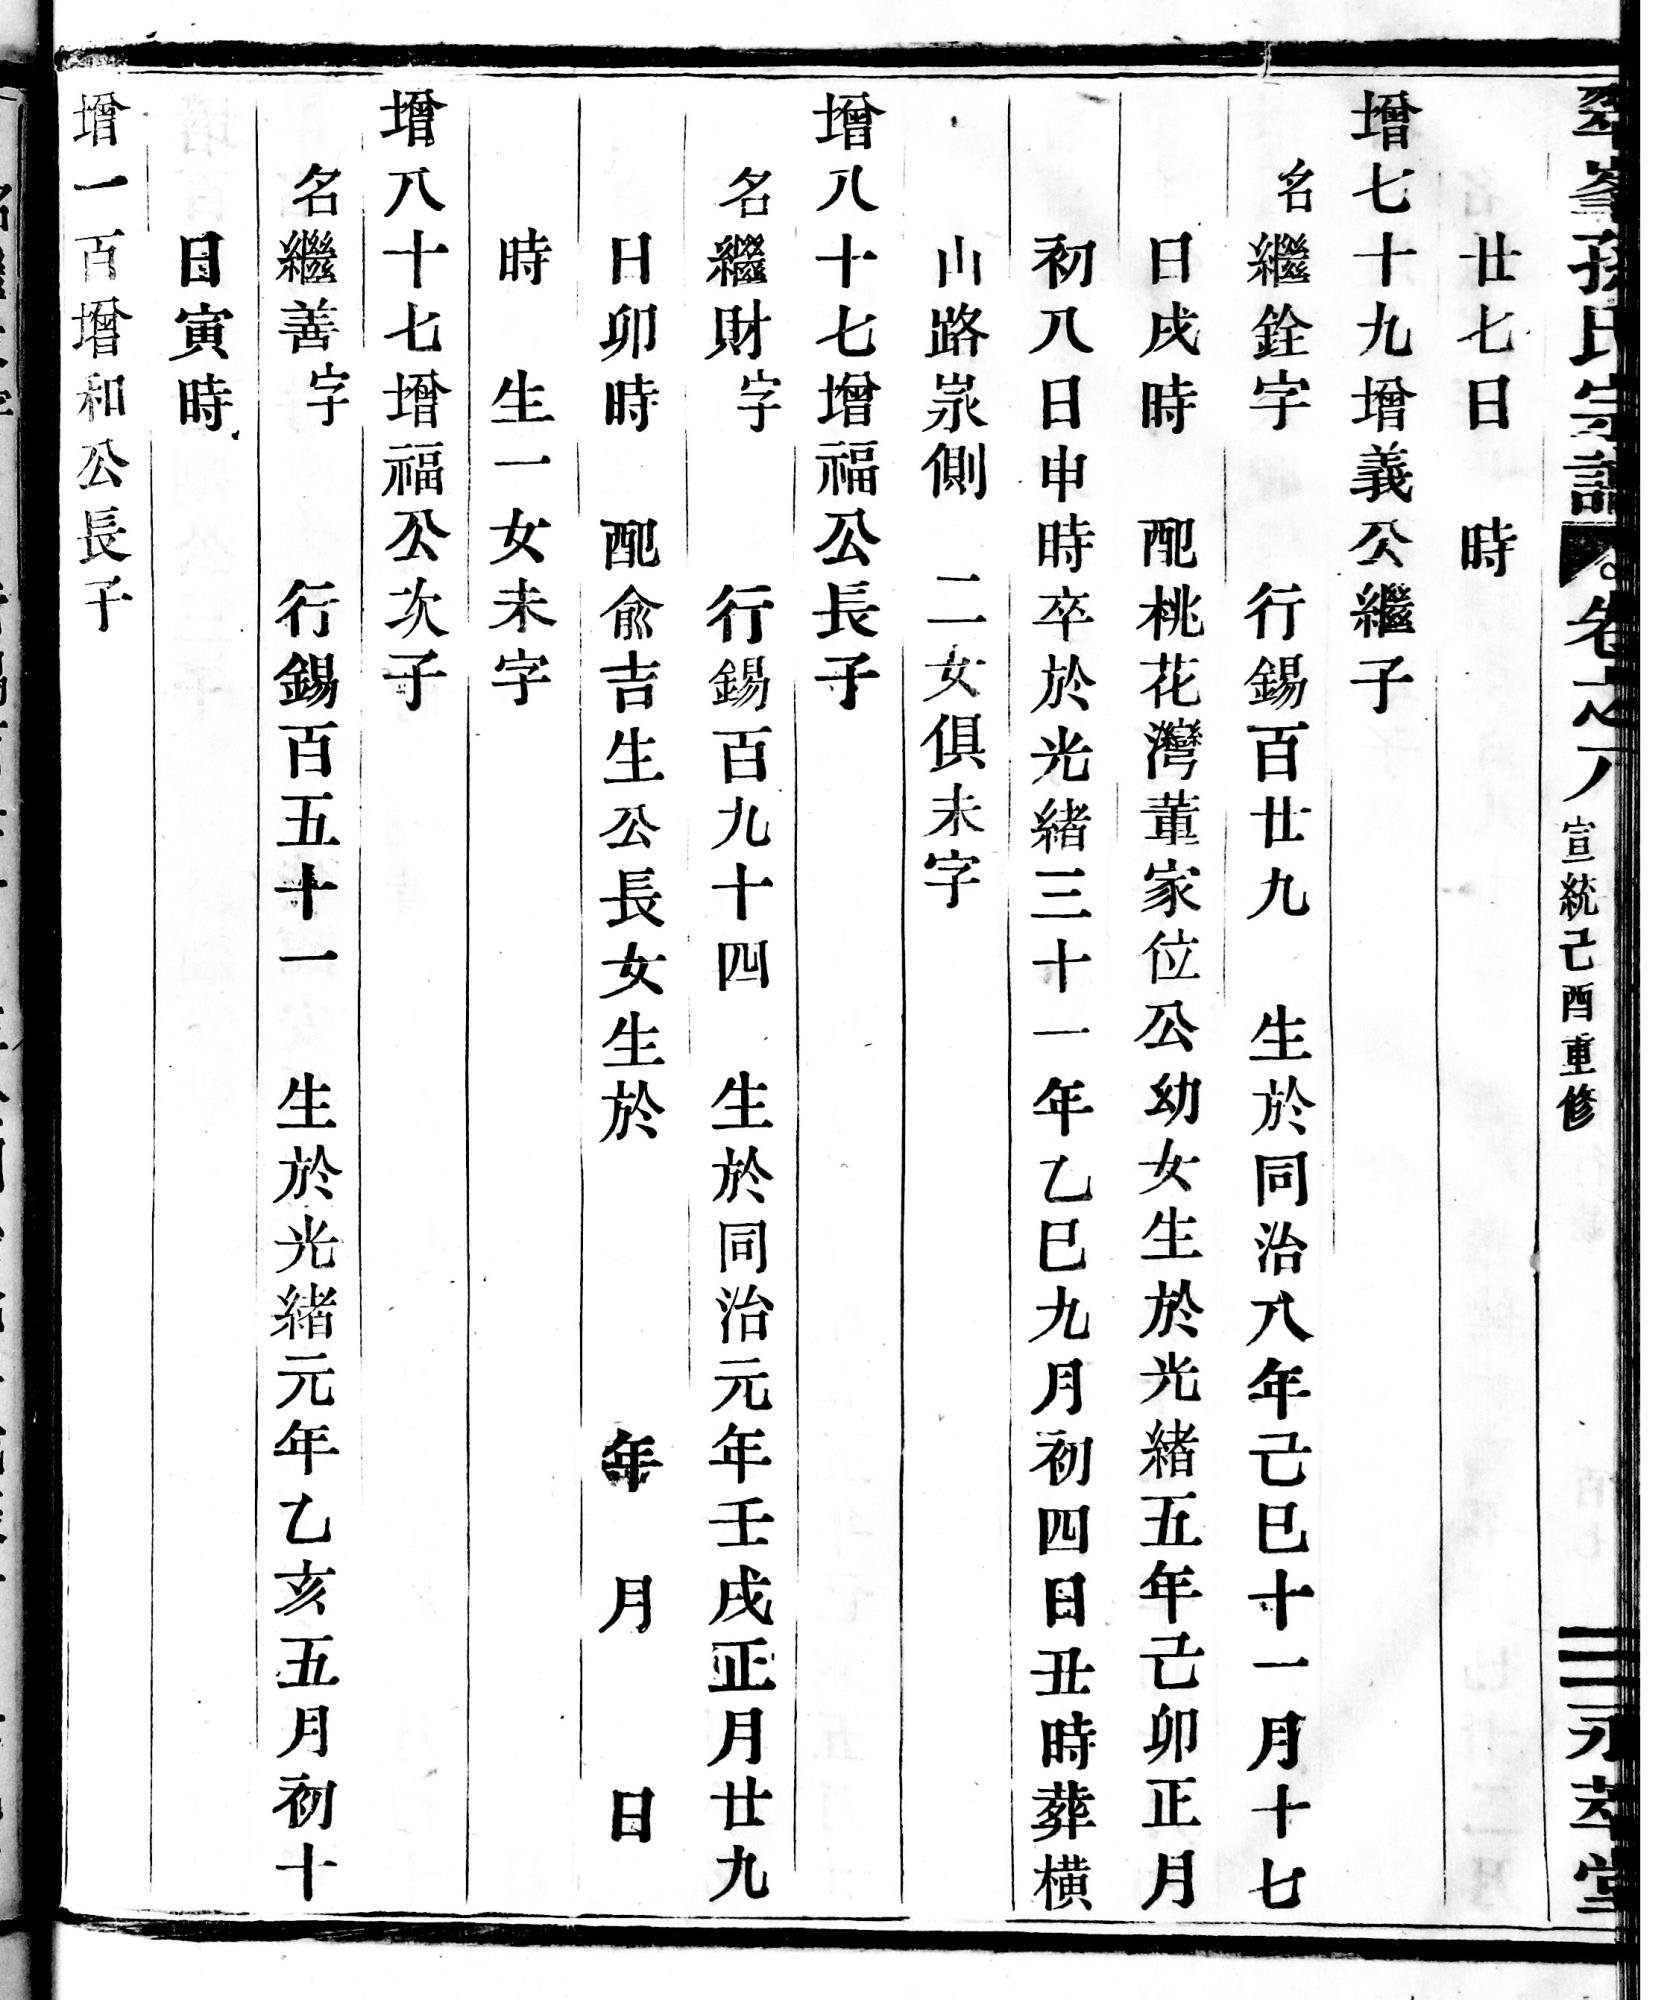 峯孫氏宗譜 卷之八 宣統己酉重修 永萃堂
廿七日 時
增七十九增義公繼子
名繼銓字 行錫百廿九 生於同治八年己巳十一月十七
日戌時 配桃花灣董家位公幼女生於光緒五年己卯正月
初八日申時卒於光緒三十一年乙巳九月初四日丑時葬橫
山路㟲側 二女俱未字
增八十七增福公長子
名繼財字 行錫百九十四 生於同治元年壬戌正月廿九
日卯時 配俞吉生公長女生於 年 月 日
時 生一女未字
增八十七增福公次子
名繼善字 行錫百五十一 生於光緒元年乙亥五月初十
日寅時
增一百增和公長子